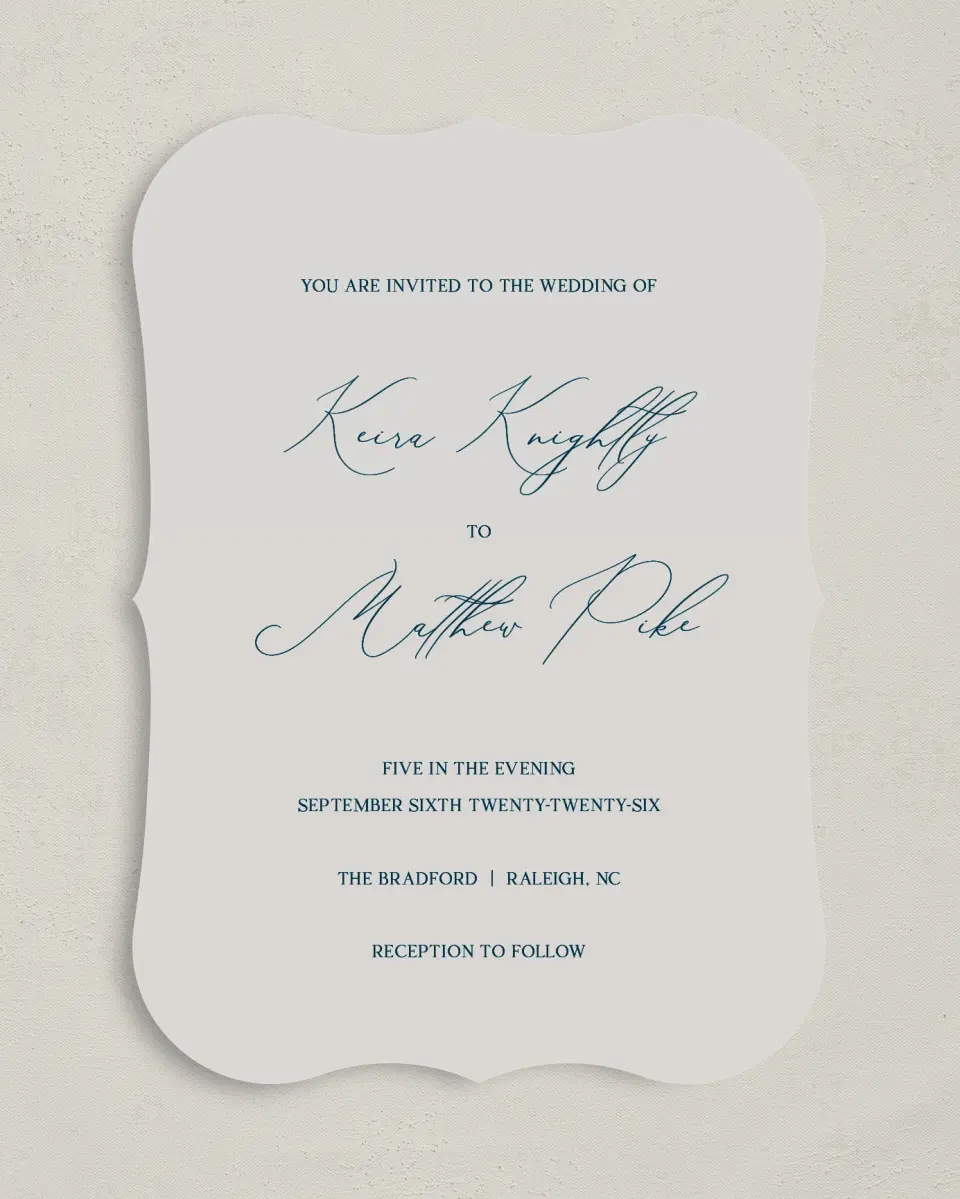 YOU ARE INVITED TO THE WEDDING OF
Keira Knightly
TO
Matthew Pike
FIVE IN THE EVENING
SEPTEMBER SIXTH TWENTY-TWENTY-SIX
THE BRADFORD | RALEIGH, NC
RECEPTION TO FOLLOW